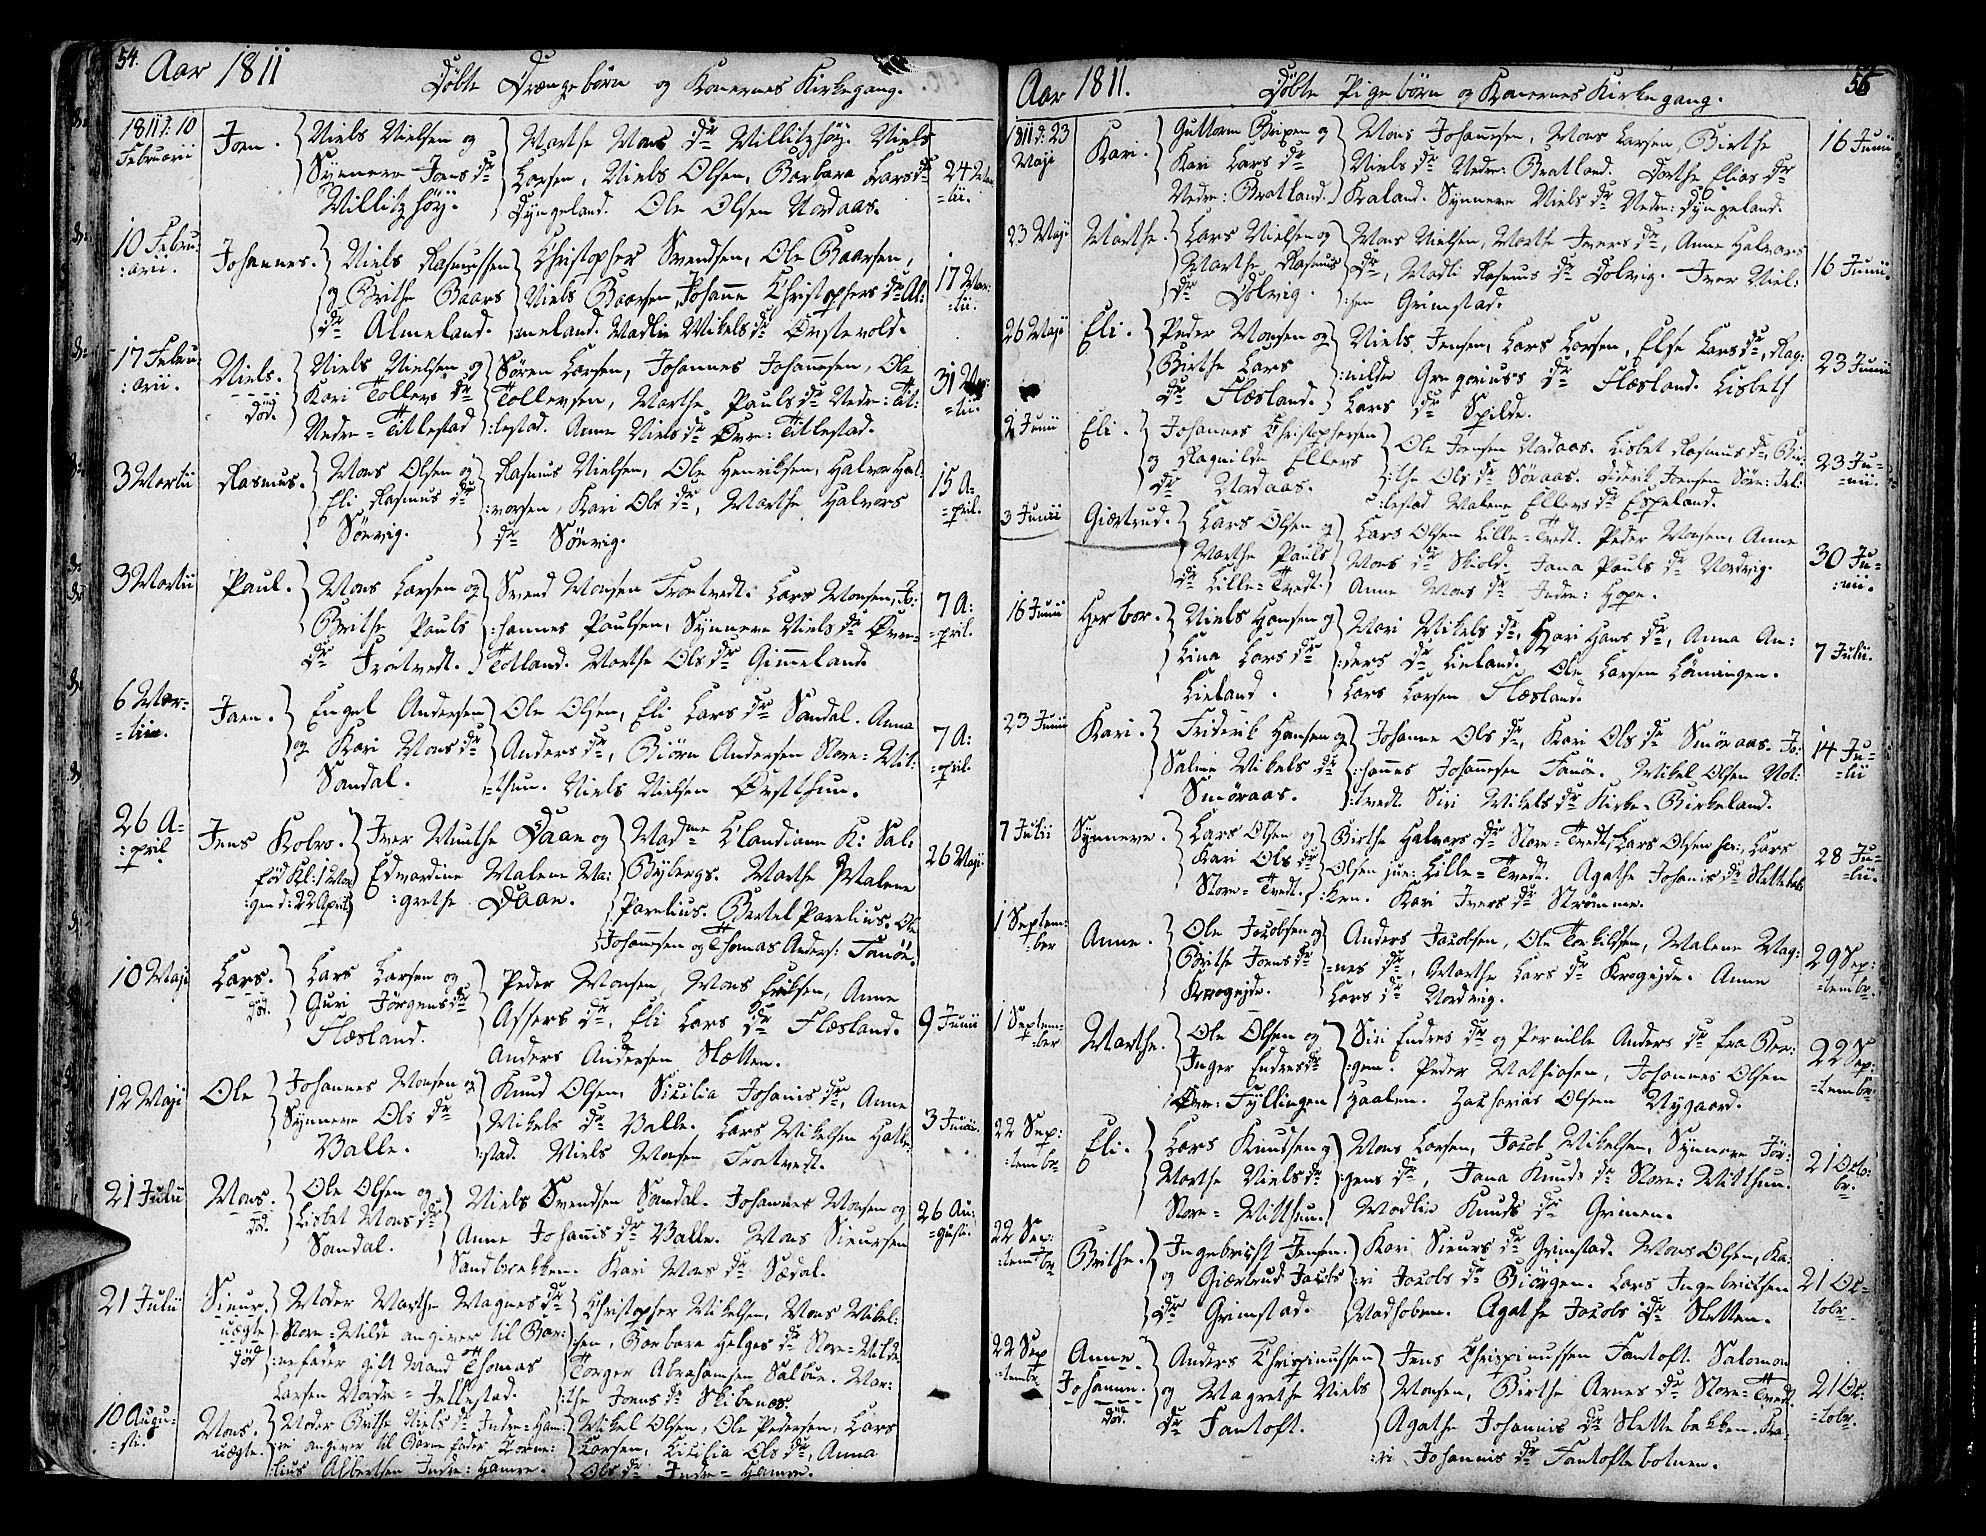 54.
Aar 1811
Døbte Drængebörn og Konernes Kirkegang.
1811 d: 10
Februarii
Joen.
Niels Nielsen og
Synneve Joens dr
Millitzhöy.
Marthe Mons dr Millitzhöy. Niels
Larsen, Niels Olsen, Barbara Lars dr
Dyngeland. Ole Olsen Nordaas.
24 Mar
=tii.
10 Febru:
:arii.
Johannes.
Niels Rasmussen
og Brithe Baars
dr Almeland.
Christopher Svendsen, Ole Baarsen,
Niels Baarsen, Johanne Christophers dr Al:
:meland. Madlie Mikels dr Øvstevold.
17 Mar:
tii.
17 Febru:
:arii.
Niels.
død.
Niels Nielsen og
Kari Tollevs dr
Nedre=Titlestad
Sören Larsen, Johannes Johannesen, Ole
Tollevsen, Marthe Pauls dr Nedre: Tit:
:lestad. Anne Niels dr Øvre: Titlestad.
31 Mar:
=tii.
3 Martii
Rasmus.
Mons Olsen og
Eli Rasmus dr
Sörvig.
Rasmus Nielsen, Ole Henriksen, Halvor Hal:
:vorsen, Kari Ols dr, Marthe Halvors
dr Sörvig.
15 A-
=pril.
3 Martii
Paul.
Mons Larsen og
Brithe Pauls
dr Troetvedt.
Svend Monsen Troetvedt. Lars Monsen, Jo:
:hannes Paulsen, Synneve Niels dr Øvre=
Totland. Marthe Ols dr Gimmeland.
7 A:
=pril.
6 Mar=
=tii.
Joen.
Engel Andersen
og Kari Mons dr
Sandal.
Ole Olsen, Eli Lars dr Sandal. Anna
Anders dr, Biörn Andersen Store=Mil:
=thun. Niels Nielsen Øvstthun.
7 A:
:pril.
26 A=
:pril
Jens Kobro.
fød Kl: 1 Mor
:gen d: 22 April
Iver Munthe Daae og
Edvardine Malene Ma:
:grethe Daae.
Madme Claudiane K: Sal:
Bÿbergs. Marthe Malene
Parelius. Bertel Parelius. Ole
Johannesen og Thomas Anders: Tanöe.
26 Maji
10 Maji
Lars.
død.
Lars Larsen og
Guri Jörgens dr
Flæsland.
Peder Monsen, Mons Eriksen, Anne
Assers dr, Eli Lars dr Flæsland.
Anders Andersen Sletten.
9 Junii
12 Maji
Ole
Johannes Monsen og
Synneve Ols dr
Balle.
Knud Olsen, Sicilia Johanis dr, Anne
Mikels dr Balle. Lars Mikelsen Hatle
:stad. Niels Monsen Troetvedt.
3 Junii.
21 Julii
Mons.
død.
Ole Olsen og
Lisbet Mons dr
Sandal.
Niels Svendsen Sandal. Johannes Monsen og
Anne Johanis dr Balle. Mons Sieursen
Sandbrekken. Kari Mons dr Sædal.
26 Au:
=gusti.
21 Julii
Sieur.
uægte
død
Moder Marthe Magnes dr
Store=Milde angiver til Bar:
:nefader gift Mand Thomas
Larsen Nordre=Tellestad.
Christopher Mikelsen, Mons Mikel:
:sen, Barbara Helges dr Store=Milde.
Torger Abrahamsen Salbue. Mar:
:the Joens dr Skibenæs.
10 Augu-
=sti.
Mons.
uægte.
Moder Brithe Niels dr Indre=Ham:
:re angiver til Barnefader Korne:
:lius Albertsen Indre: Hamre.
Mikel Olsen, Ole Pedersen, Lars
Larsen, Cicilia Ols dr, Anna
Ols dr Indre=Hamre.
Aar 1811.
Døbte Pigebörn og Konernes Kirkegang.
1811 d: 23
Maji
Kari.
Guttorm Bripen og
Kari Lars dr
Nedre: Bratland.
Mons Johannesen, Mons Larsen, Birthe
Niels dr Nedre: Bratland. Dorthe Elias dr
Kraland. Synneve Niels dr Nedre: Dyngeland.
16 Junii
23 Maji
Marthe.
Lars Nielsen og
Marthe Rasmus
dr Dolvig.
Mons Nielsen, Marthe Ivers dr, Anne Halvors
dr, Madli Rasmus dr Dolvig. Iver Niel:
:sen Grimstad.
16 Junii.
26 Maji
Eli.
Peder Monsen og
Birthe Lars
dr Flæsland.
Niels Jensen, Lars Larsen, Else Lars dr, Rag:
:nilde Gregorius's dr Flæsland. Lisbeth
Lars dr Spilde.
23 Junii
2 Junii
Eli.
Johannes Christophersen
og Ragnilde Ellevs
dr Nordaas.
Ole Jensen Nordaas. Lisbet Rasmus dr, Bir:
:the Ols dr Söraas. Diderik Jensen Söre: Tit:
:lestad. Malene Ellevs dr Espeland.
23 Ju-
=nii.
3 Junii
Giærtrud.
Lars Olsen og
Marthe Pauls
dr Lille=Tvedt.
Lars Olsen Lille=Tvedt. Peder Monsen, Anne
Mons dr Skiold. Jana Pauls dr Nordvig.
Anne Mons dr Indre: Hope.
30 Ju-
:nii.
16 Junii
Herbor.
Niels Hansen og
Lina Lars dr
Lieland.
Mari Mikels dr, Kari Hans dr, Anna An:
:ders dr Lieland. Ole Larsen Lönningen.
Lars Larsen Flæsland.
7 Julii.
23 Junii
Kari.
Friderik Hansen og
Salme Mikels dr
Smöraas.
Johanne Ols dr, Kari Ols dr Smöraas. Jo:
:hannes Johannesen Tanöe. Mikel Olsen Nat:
:tvedt Siri Mikels dr Kirke=Birkeland.
14 Ju-
=lii
7 Julii
Synneve.
Lars Olsen og
Kari Ols dr
Store=Tvedt.
Birthe Halvors dr Store=Tvedt, Lars Olsen sen:, Lars
Olsen jun: Lille=Tvedt. Agathe Johanis dr Slettebak
:ken. Kari Ivers dr Strömme.
28 Ju-
=lii.
1 Septem:
ber
Anne.
Ole Jacobsen og
Brithe Joens dr
Krogejde.
Anders Jacobsen, Ole Torkilsen, Malene Mag:
=nes dr, Marthe Lars dr Krogejde. Anne
Lars dr Nordvig.
29 Sep:
=tembr.
1 Septem=
=ber
Marthe.
Ole Olsen og
Inger Endres dr
Øvre: Fyllingen
Siri Endres dr og Pernille Anders dr fra Ber:
:gen. Peder Mathiasen, Johannes Olsen
Haalen. Zakarias Olsen Nygaard.
22 Sep:
=tembr
22 Sep:
:tembr
Eli.
Lars Knudsen og
Marthe Niels dr
Store=Milthun.
Mons Larsen, Jacob Mikelsen, Synneve Jör-
:gens dr, Jana Knuds dr Store: Milthun.
Madlie Knuds dr Grimen.
21 Octo-
br.
22 Sep:
:tembr
Brithe.
Ingebricht Jensen
og Giærtrud Jacobs
dr Grimstad.
Kari Sieurs dr Grimstad. Mons Olsen, Ka:
:ri Jacobs dr Biörgen. Lars Ingebrichtsen
Vadsoben. Agathe Jacobs dr Sletten.
21 Oc-
tobr.
22 Sep
:tembr
Anne
Johanne.
død.
Anders Chrispinussen
og Magrethe Niels
dr Fantoft.
Jens Chrispinussen Fantoft. Salomon
Monsen, Birthe Arnes dr Store=Tvedt.
Agathe Johannis dr Slettebakken. Ka-
:ri Johannis dr Fantoftebotnen.
21 Oc-
=tobr.